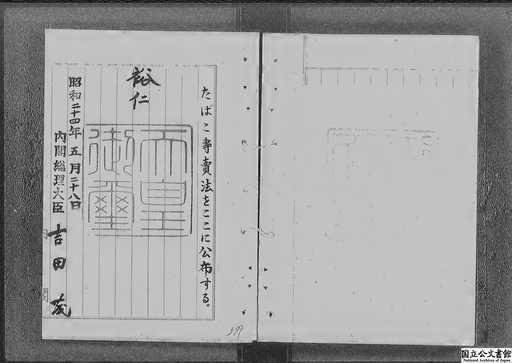 たばこ専賣法をここに公布する。
裕仁
天皇
御璽
昭和二十四年五月二十八日
内閣総理大臣 吉田茂
国立公文書館
National Archives of Japan